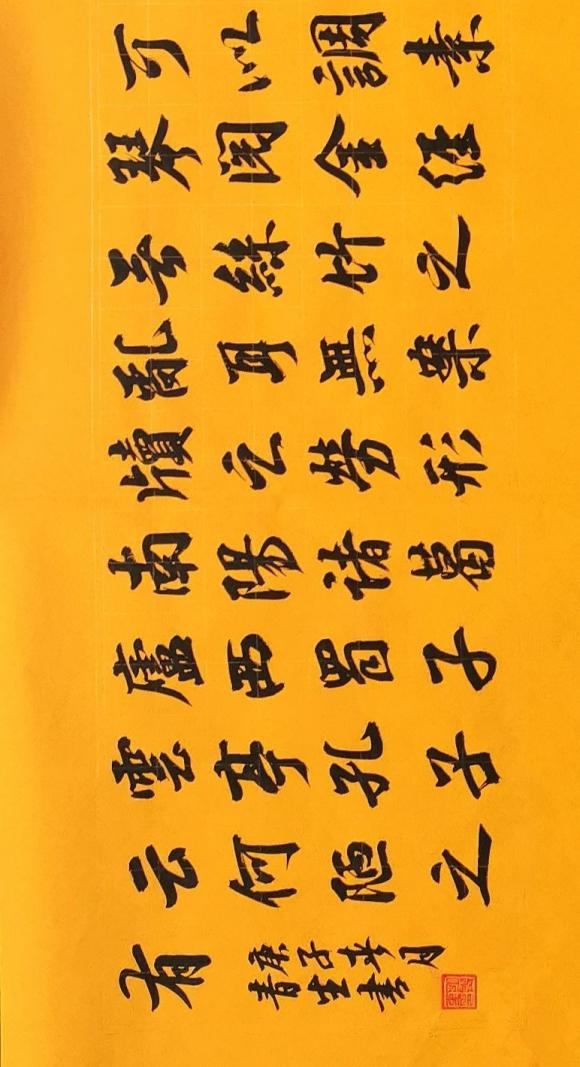 可以調素
琴閱金經
无絲竹之
亂耳無案
牘之勞形
南陽諸葛
廬西蜀子
雲亭孔子
云何陋之
有
庚子冬月
生書